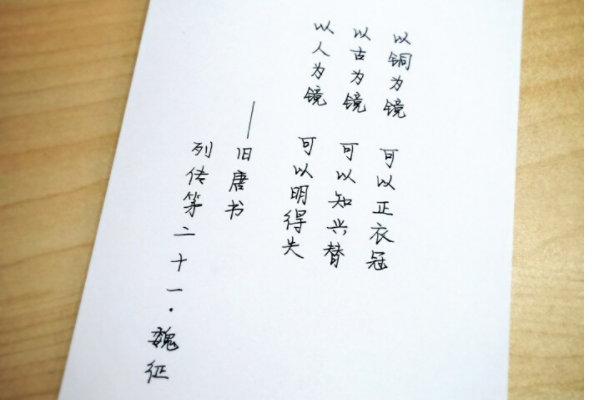 以铜为镜 可以正衣冠
以古为镜 可以知兴替
以人为镜 可以明得失
——旧唐书
列传第二十一·魏征